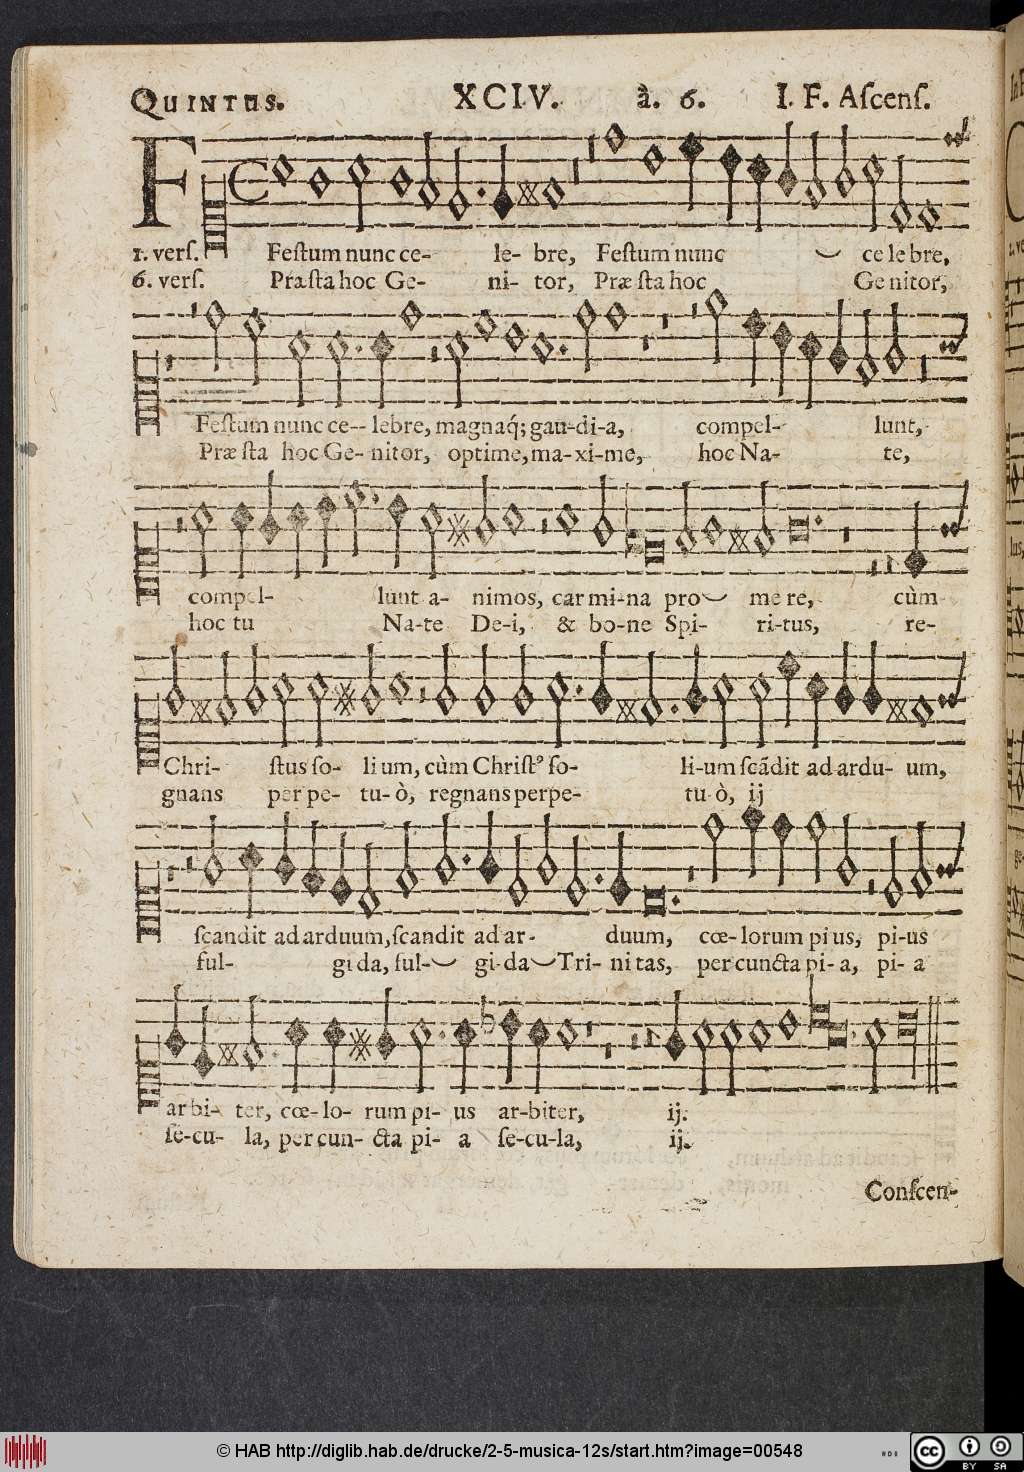 QUINTUS. XCIV. à. 6. I. F. Aſcenſ.
F
1. verſ. Feſtum nunc ce- le- bre, Feſtum nunc ce le bre,
6. verſ. Præſta hoc Ge- ni- tor, Præ ſta hoc Ge nitor,
Feſtum nunc ce-- lebre, magnaq́; gau-di-a, compel- lunt,
Præ ſta hoc Ge- nitor, optime, ma-xi-me, hoc Na- te,
compel- lunt a- nimos, car mi-na pro me re, cùm
hoc tu Na-te De-i, & bo-ne Spi- ri-tus, re-
Chri- ſtus ſo- li um, cùm Chriſtꝰ ſo- li-um ſcãdit ad ardu- um,
gnans per pe- tu- ò, regnans perpe- tu ò, ij
ſcandit ad arduum, ſcandit ad ar- duum, cœ- lorum pi us, pi-us
ful- gi da, ful- gi-da Tri- ni tas, per cuncta pi- a, pi- a
ar bi- ter, cœ- lo- rum pi- us ar-biter, ij.
ſe-cu- la, per cun- cta pi- a ſe-cu-la, ij.
Conſcen-
© HAB http://diglib.hab.de/drucke/2-5-musica-12s/start.htm?image=00548
cc BY SA